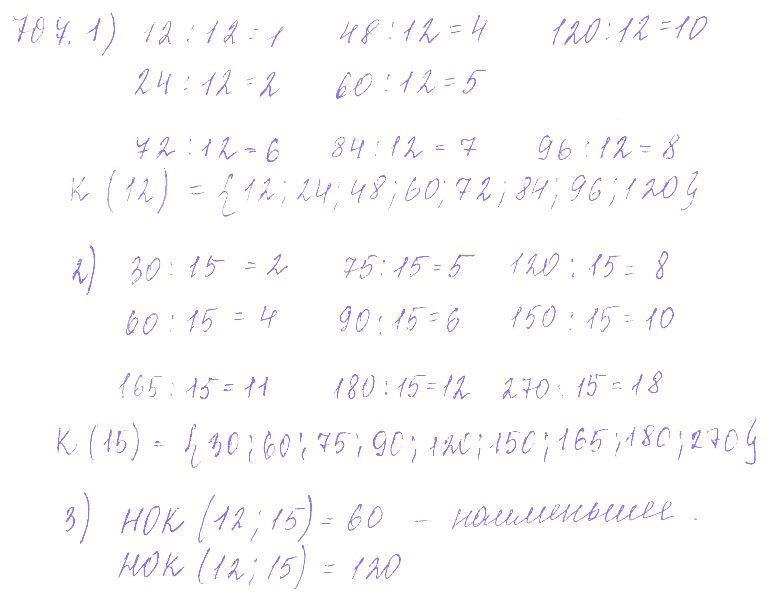 704. 1) 12 : 12 = 1 48 : 12 = 4 120 : 12 = 10
24 : 12 = 2 60 : 12 = 5
72 : 12 = 6 84 : 12 = 7 96 : 12 = 8
К (12) = {12; 24; 48; 60; 72; 84; 96; 120}
2) 30 : 15 = 2 75 : 15 = 5 120 : 15 = 8
60 : 15 = 4 90 : 15 = 6 150 : 15 = 10
165 : 15 = 11 180 : 15 = 12 270 : 15 = 18
К (15) = {30; 60; 75; 90; 120; 150; 165; 180; 270}
3) НОК (12; 15) = 60 – наименьшее.
НОК (12; 15) = 120